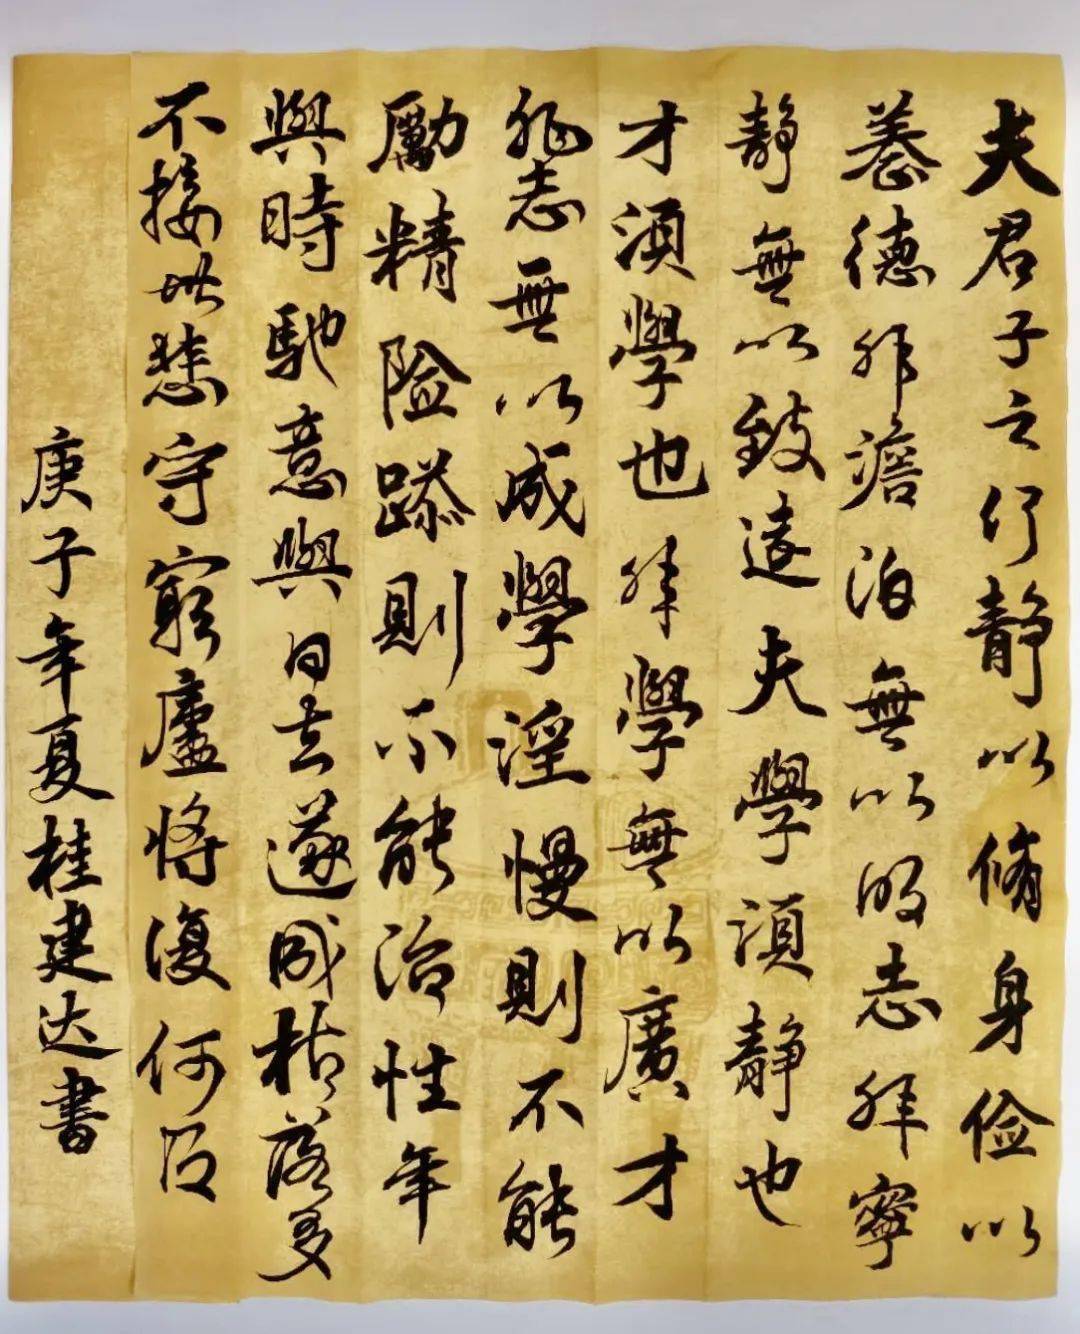 夫君子之行靜以脩身儉以
養德非澹泊無以明志非寧
靜無以致遠夫學須靜也
才須學也非學無以廣才
非志無以成學淫慢則不能
勵精險躁則不能治性年
與時馳意與日去遂成枯落多
不接世悲守窮廬將復何及
庚子年夏桂建达書